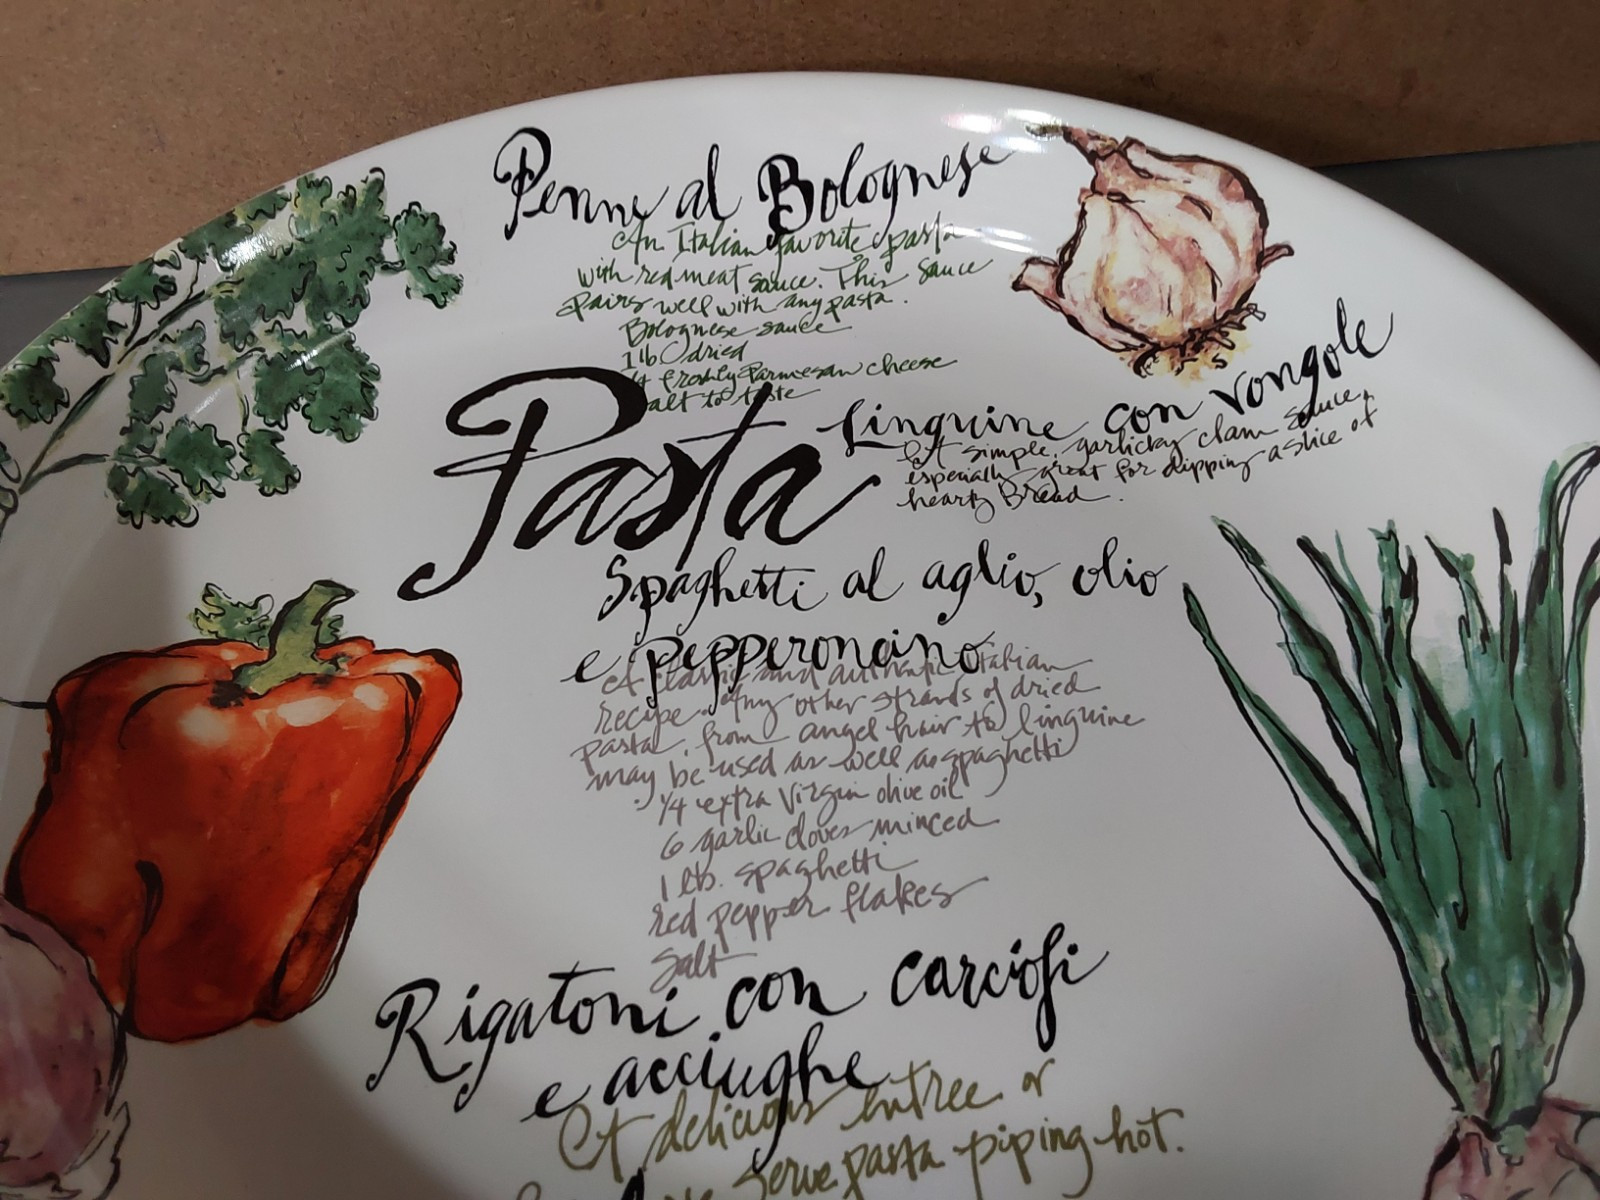 Penne al Bolognese
An Italian favorite pasta
with red meat sauce. This sauce
pairs well with any pasta.
Bolognese sauce
1 lb dried
freshly Parmesan cheese
alt to taste
Pasta
Linguine con vongole
A simple, garlicky clam sauce,
especially great for dipping a slice of
hearty Bread.
Spaghetti al aglio, olio
e pepperoncino
A classic and authentic Italian
recipe. Any other strands of dried
pasta, from angel hair to linguine
may be used as well as spaghetti
1/4 extra virgin olive oil
6 garlic cloves minced
1 lb. spaghetti
red pepper flakes
Salt
Rigatoni con carciofi
e acciughe
A delicious entree or
serve pasta piping hot.